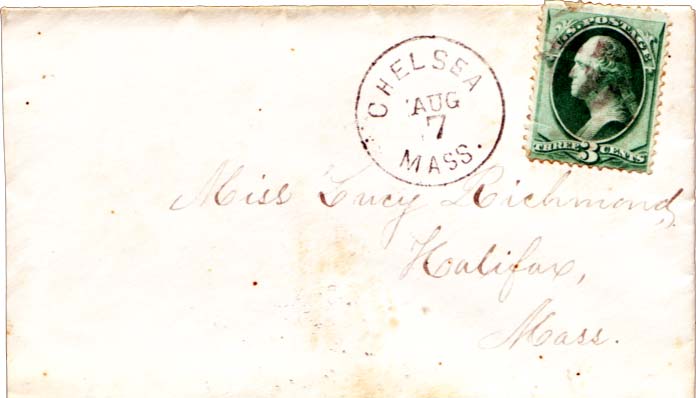 U.S. POSTAGE
THREE 3 CENTS
CHELSEA
AUG
7
MASS.
Miss Lucy Richmond,
Halifax,
Mass.